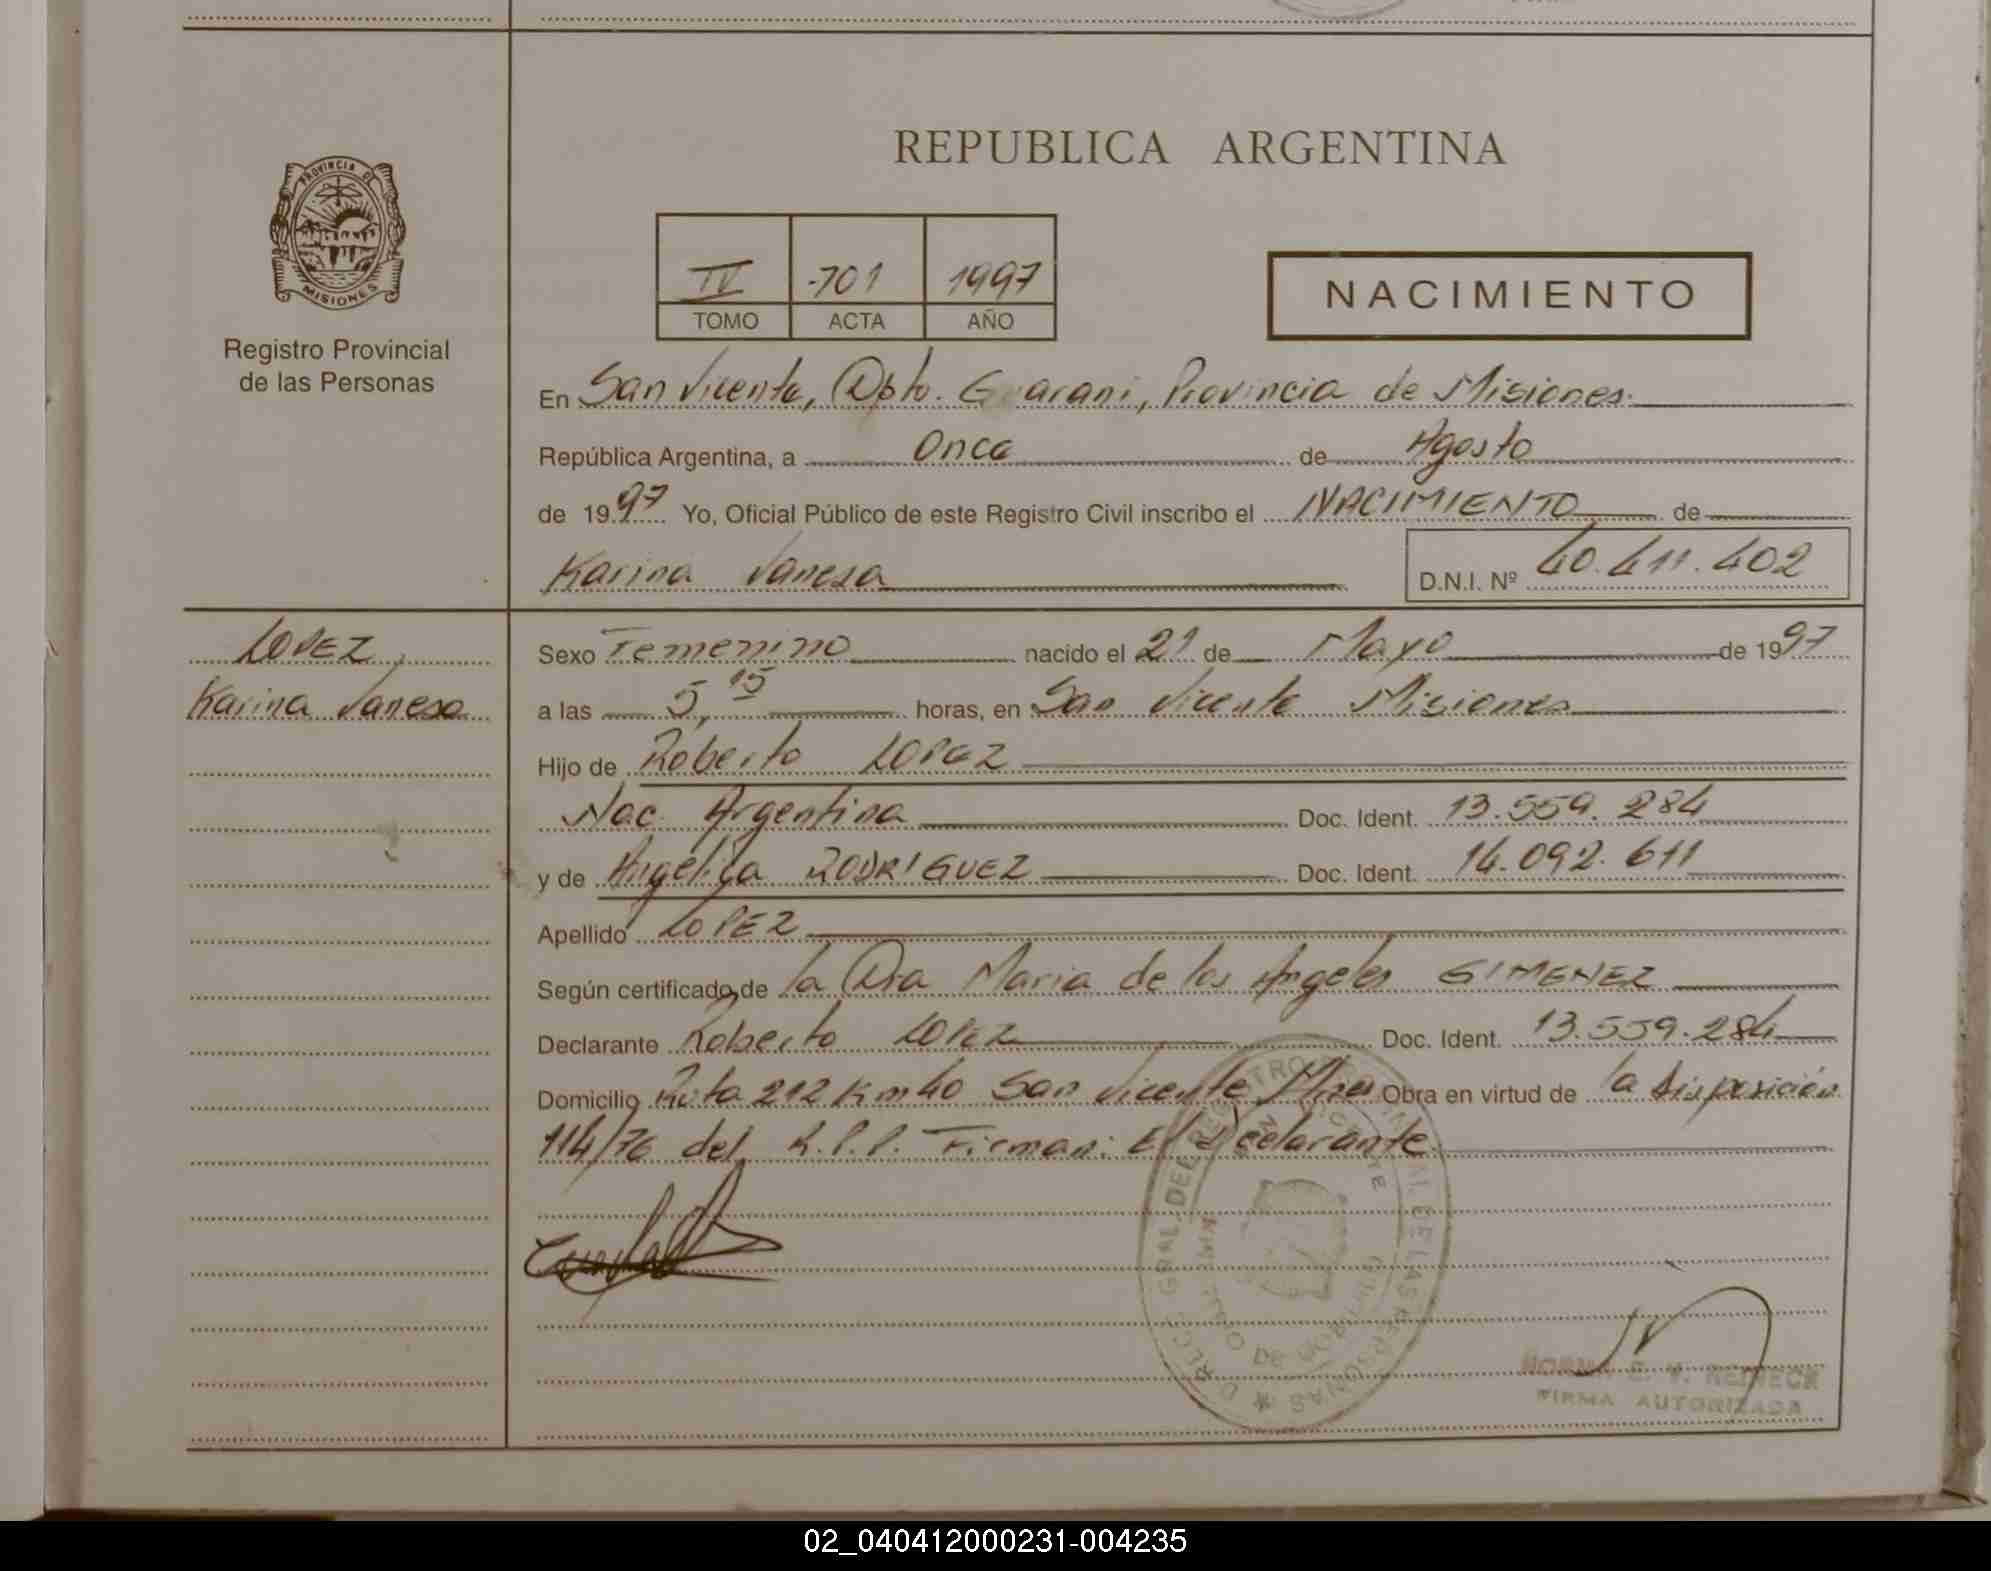 REPUBLICA ARGENTINA
PROVINCIA DE
MISIONES
Registro Provincial
de las Personas
IV 701 1997
TOMO ACTA AÑO
NACIMIENTO
En San Vicente, Dpto. Guarani, Provincia de Misiones.
República Argentina, a Once de Agosto
de 1997 Yo, Oficial Público de este Registro Civil inscribo el NACIMIENTO de
Karina Vanesa D.N.I. Nº 40.411.402
LOPEZ,
Karina Vanesa
Sexo Femenino nacido el 21 de Mayo de 1997
a las 5,15 horas, en San Vicente Misiones
Hijo de Roberto LOPEZ
Nac. Argentina Doc. Ident. 13.559.284
y de Angélica RODRIGUEZ Doc. Ident. 14.092.611
Apellido LOPEZ
Según certificado de la Dra Maria de los Angeles GIMENEZ
Declarante Roberto LOPEZ Doc. Ident. 13.559.284
Domicilio Ruta 212 Km 40 San Vicente Mnes Obra en virtud de la disposición
114/76 del R.P.P. Firman: El Declarante
DIRECC. GRAL. DEL REGISTRO PROVINCIAL DE LAS PERSONAS
NORMA E. V. REINECK
FIRMA AUTORIZADA
02_040412000231-004235